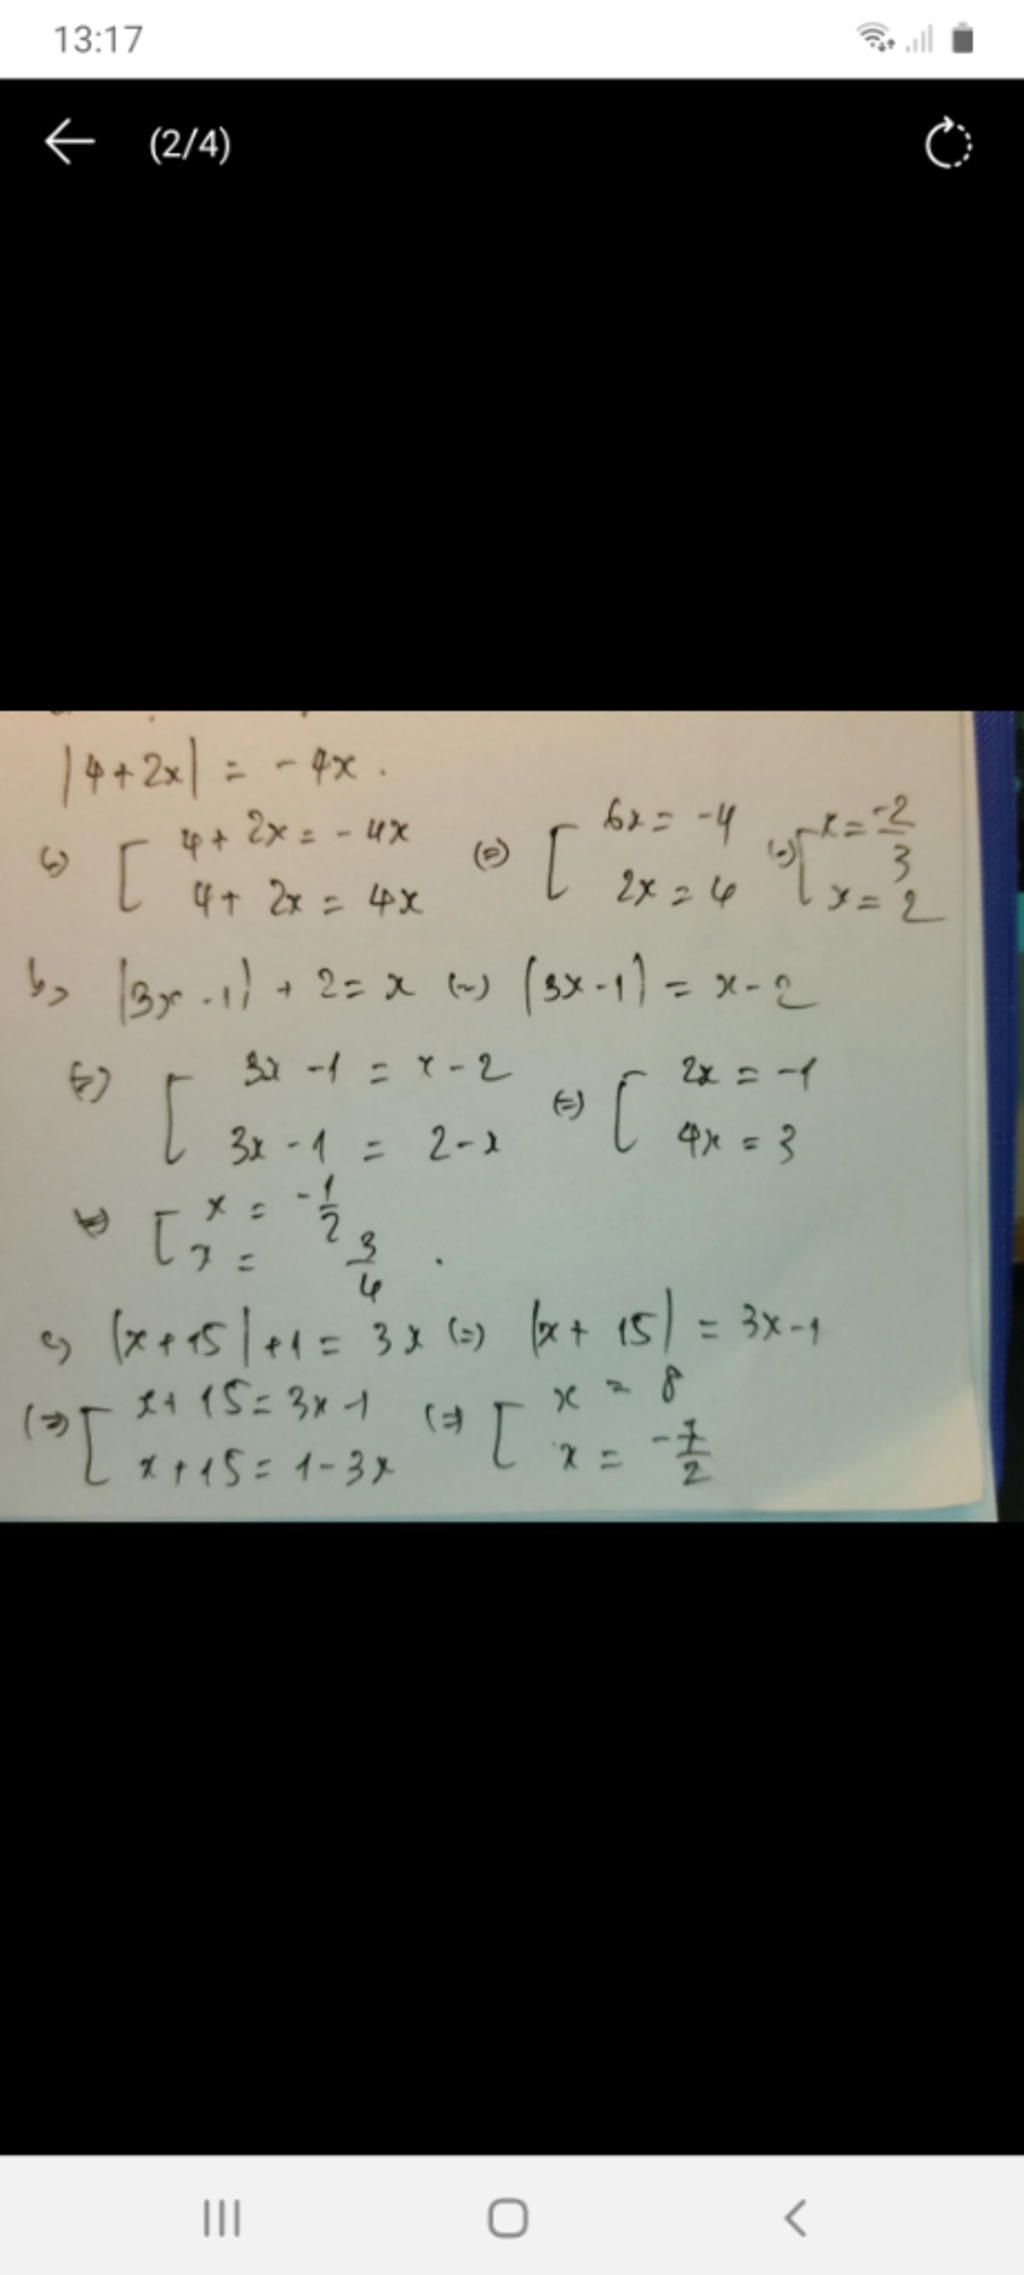 13:17
(2/4)
|4+2x| = -4x.
(=) [ 4+2x = -4x (=) [ 6x = -4 (=) [ x = -2/3
4+2x = 4x 2x = 4 x = 2
b, |3x-1| + 2 = x (=) |3x-1| = x-2
(=) [ 3x-1 = x-2 (=) [ 2x = -1
3x-1 = 2-x 4x = 3
(=) [ x = -1/2
x = 3/4.
c, |x+15|+1 = 3x (=) |x+15| = 3x-1
(=) [ x+15 = 3x-1 (=) [ x = 8
x+15 = 1-3x x = -7/2